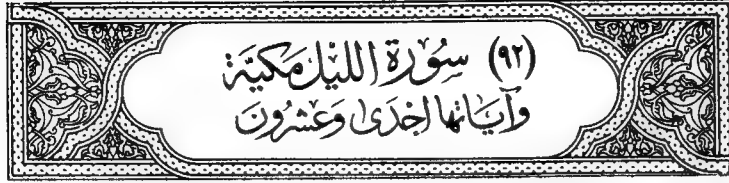 (٩٢) سُوْرَةُ اللَّيْلِ مَكِيَّةٌ
وَآيَاتُهَا إِحْدَىٰ وَعِشْرُونَ